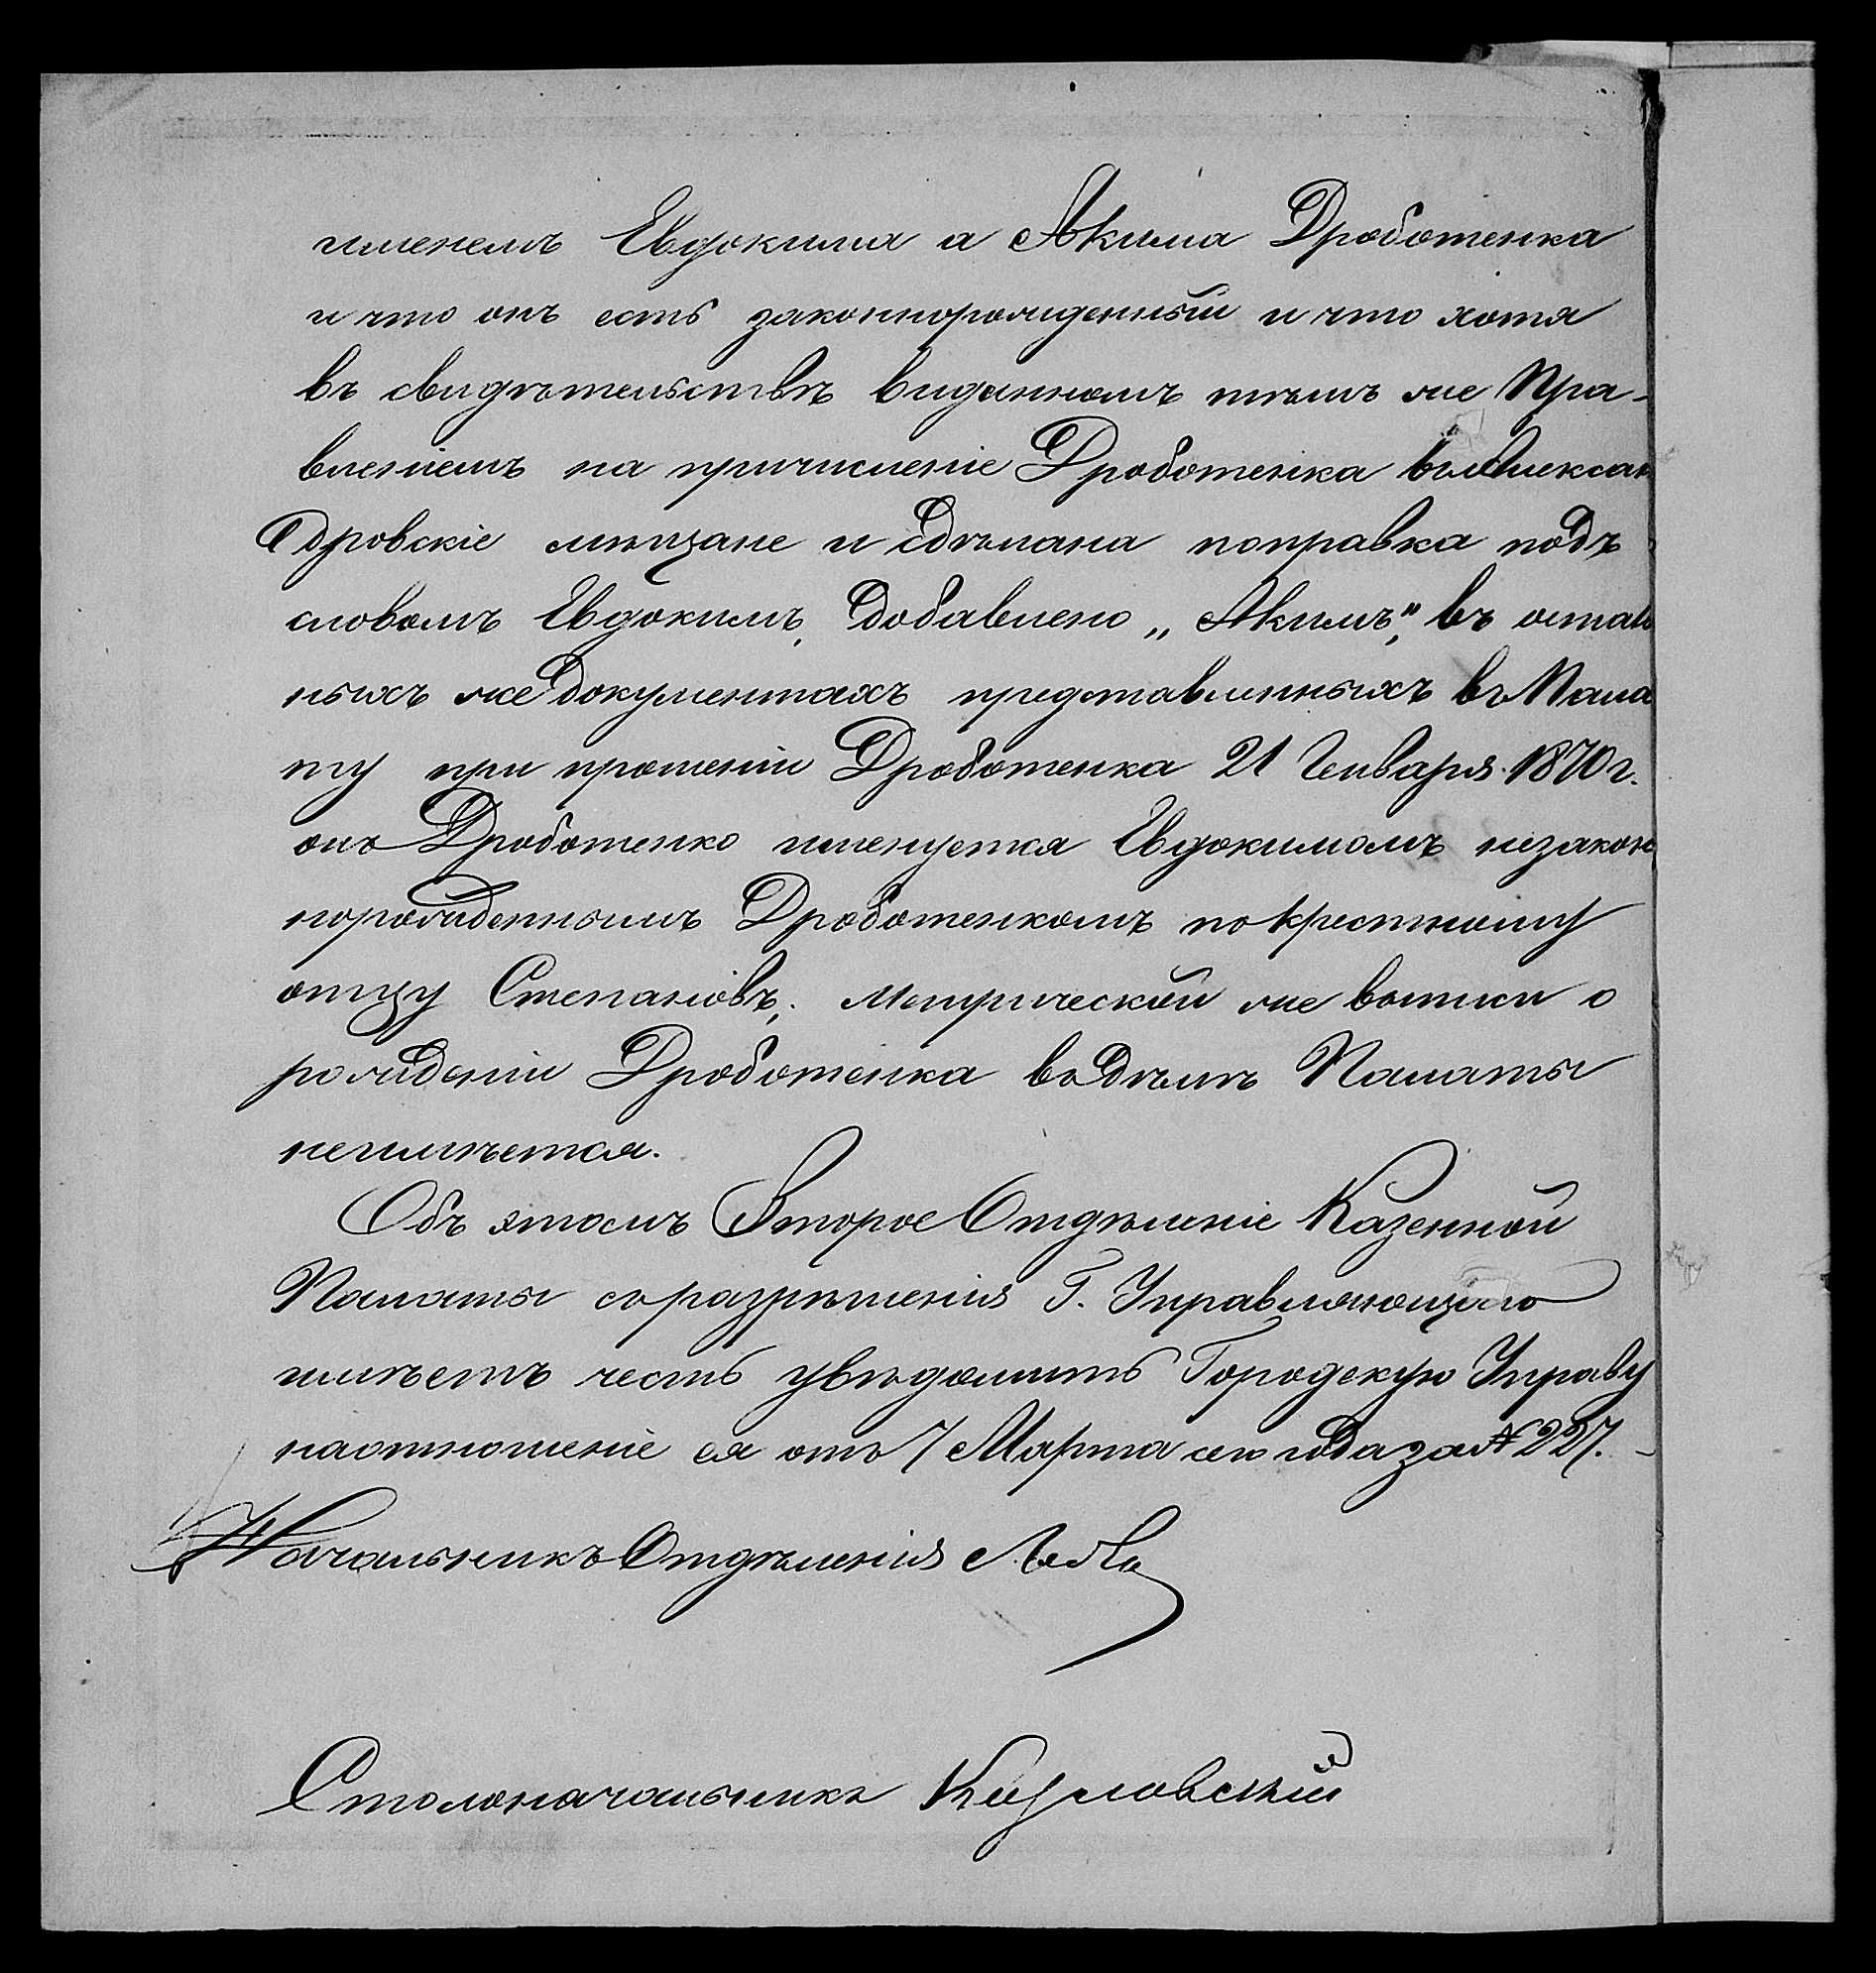 именемъ Евдокима а Акима Дроботенка
и что онъ есть законнорожденный и что хотя
въ свидѣтельствѣ виданномъ тѣмъ же Пра-
вленіемъ на причисленіе Дроботенка въ Алексан
дровскіе мѣщане и сдѣлана поправка подъ
словомъ Евдокимъ, добавлено „Акимъ", въ осталь
ныхъ же документахъ представленныхъ въ Пала
ту при прошеніи Дроботенка 21 Генваря 1870 г.
онъ Дроботенко именуется Евдокимомъ незакон
норожденнымъ Дроботенкомъ по крестному
отцу Степановъ; Метрической же выписи о
рожденіи Дроботенка въ дѣлѣ Палаты
неимѣется.
Объ этомъ Второе Отдѣленіе Казенной
Палаты съ разрѣшенія Г. Управляющаго
имѣетъ честь увѣдомить Городскую Управу
на отношеніе ея отъ 7 Марта сего года за № 227.
Начальникъ Отдѣленія
Столоначальникъ